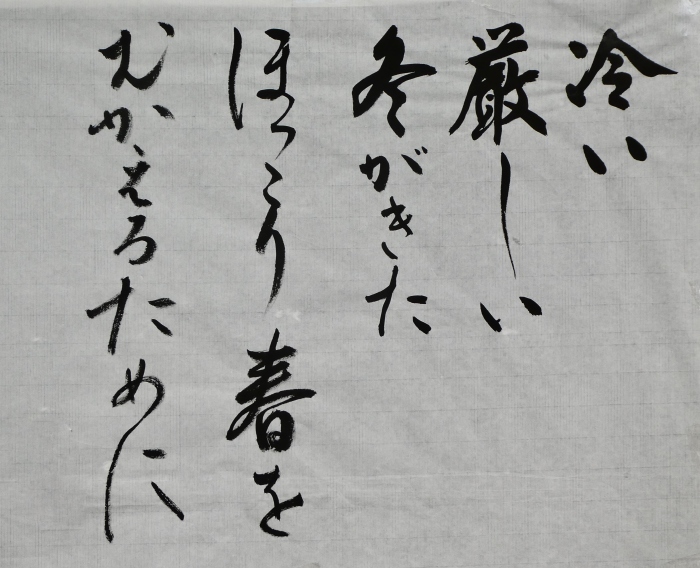 冷い
厳しい
冬がきた
ほっこり春を
むかえるために